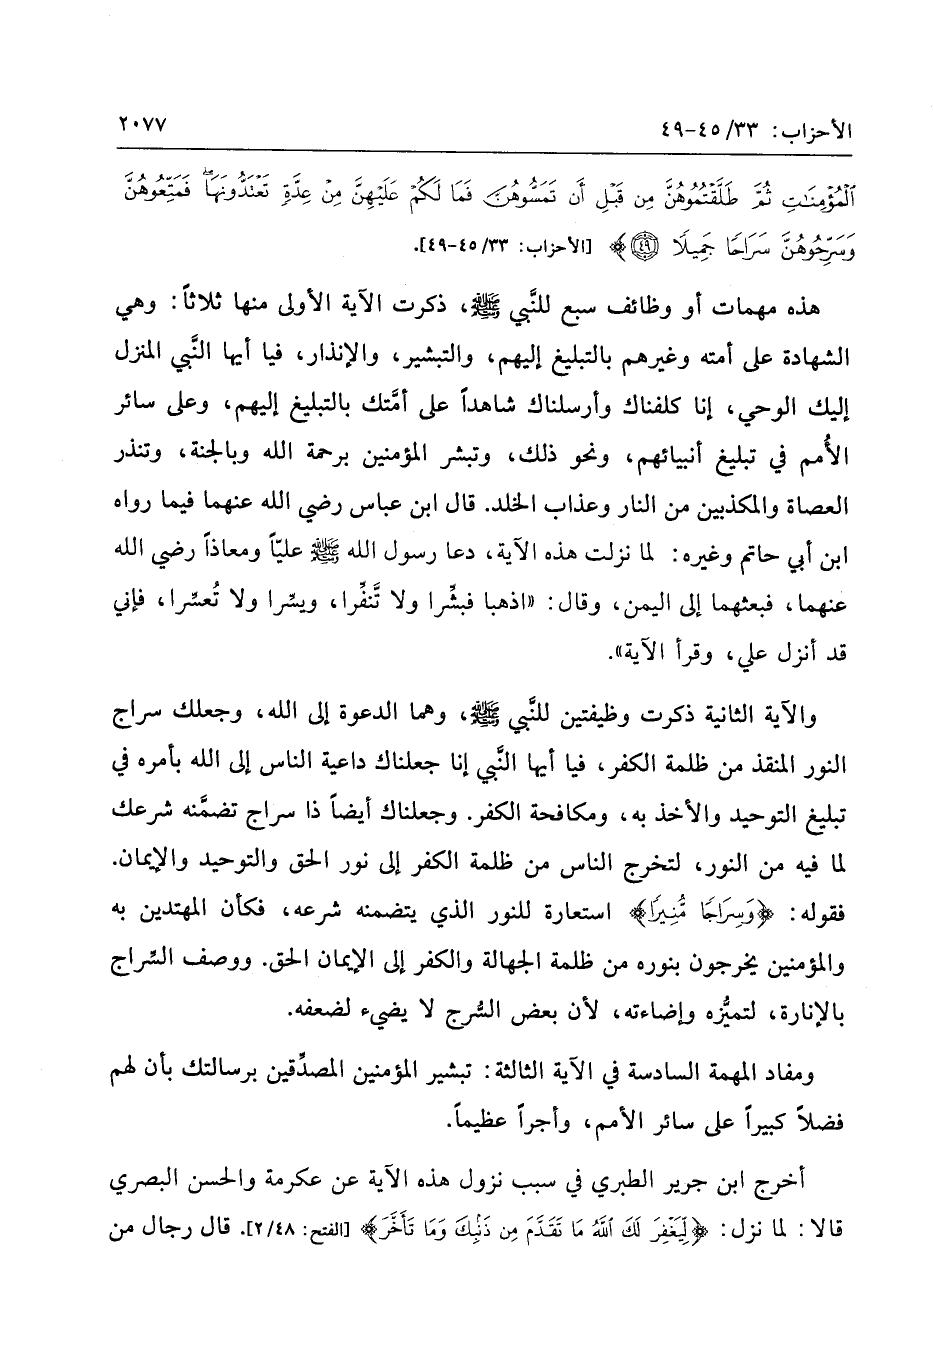 الأحزاب: ٤٥/٣٣-٤٩
٢٠٧٧
ٱلْمُؤْمِنَٰتِ ثُمَّ طَلَّقْتُمُوهُنَّ مِن قَبْلِ أَن تَمَسُّوهُنَ فَمَا لَكُمْ عَلَيْهِنَّ مِنْ عِدَّةٍ تَعْتَدُّونَهَا ۖ فَمَتِّعُوهُنَّ
وَسَرِّحُوهُنَّ سَرَاحًا جَمِيلًا ﴿٤٩﴾﴾ [الأحزاب: ٤٥/٣٣-٤٩].
هذه مهمات أو وظائف سبع للنَّبي ﷺ، ذكرت الآية الأولى منها ثلاثاً: وهي
الشهادة على أمته وغيرهم بالتبليغ إليهم، والتبشير، والإنذار، فيا أيها النَّبي المنزل
إليك الوحي، إنا كلفناك وأرسلناك شاهداً على أمَّتك بالتبليغ إليهم، وعلى سائر
الأُمم في تبليغ أنبيائهم، ونحو ذلك، وتبشر المؤمنين برحمة الله وبالجنة، وتنذر
العصاة والمكذبين من النار وعذاب الخلد. قال ابن عباس رضي الله عنهما فيما رواه
ابن أبي حاتم وغيره: لما نزلت هذه الآية، دعا رسول الله ﷺ عليّاً ومعاذاً رضي الله
عنهما، فبعثهما إلى اليمن، وقال: «اذهبا فبشِّرا ولا تَّنفِّرا، ويسِّرا ولا تُعسِّرا، فإني
قد أنزل علي، وقرأ الآية».
والآية الثانية ذكرت وظيفتين للنَّبي ﷺ، وهما الدعوة إلى الله، وجعلك سراج
النور المنقذ من ظلمة الكفر، فيا أيها النَّبي إنا جعلناك داعية الناس إلى الله بأمره في
تبليغ التوحيد والأخذ به، ومكافحة الكفر. وجعلناك أيضاً ذا سراج تضمَّنه شرعك
لما فيه من النور، لتخرج الناس من ظلمة الكفر إلى نور الحق والتوحيد والإيمان.
فقوله: ﴿وَسِرَاجًا مُّنِيرًا﴾ استعارة للنور الذي يتضمنه شرعه، فكأن المهتدين به
والمؤمنين يخرجون بنوره من ظلمة الجهالة والكفر إلى الإيمان الحق. ووصف السِّراج
بالإنارة، لتميُّزه وإضاءته، لأن بعض السُّرج لا يضيء لضعفه.
ومفاد المهمة السادسة في الآية الثالثة: تبشير المؤمنين المصدِّقين برسالتك بأن لهم
فضلاً كبيراً على سائر الأمم، وأجراً عظيماً.
أخرج ابن جرير الطبري في سبب نزول هذه الآية عن عكرمة والحسن البصري
قالا: لما نزل: ﴿لِّيَغْفِرَ لَكَ ٱللَّهُ مَا تَقَدَّمَ مِن ذَنۢبِكَ وَمَا تَأَخَّرَ﴾ [الفتح: ٢/٤٨]. قال رجال من